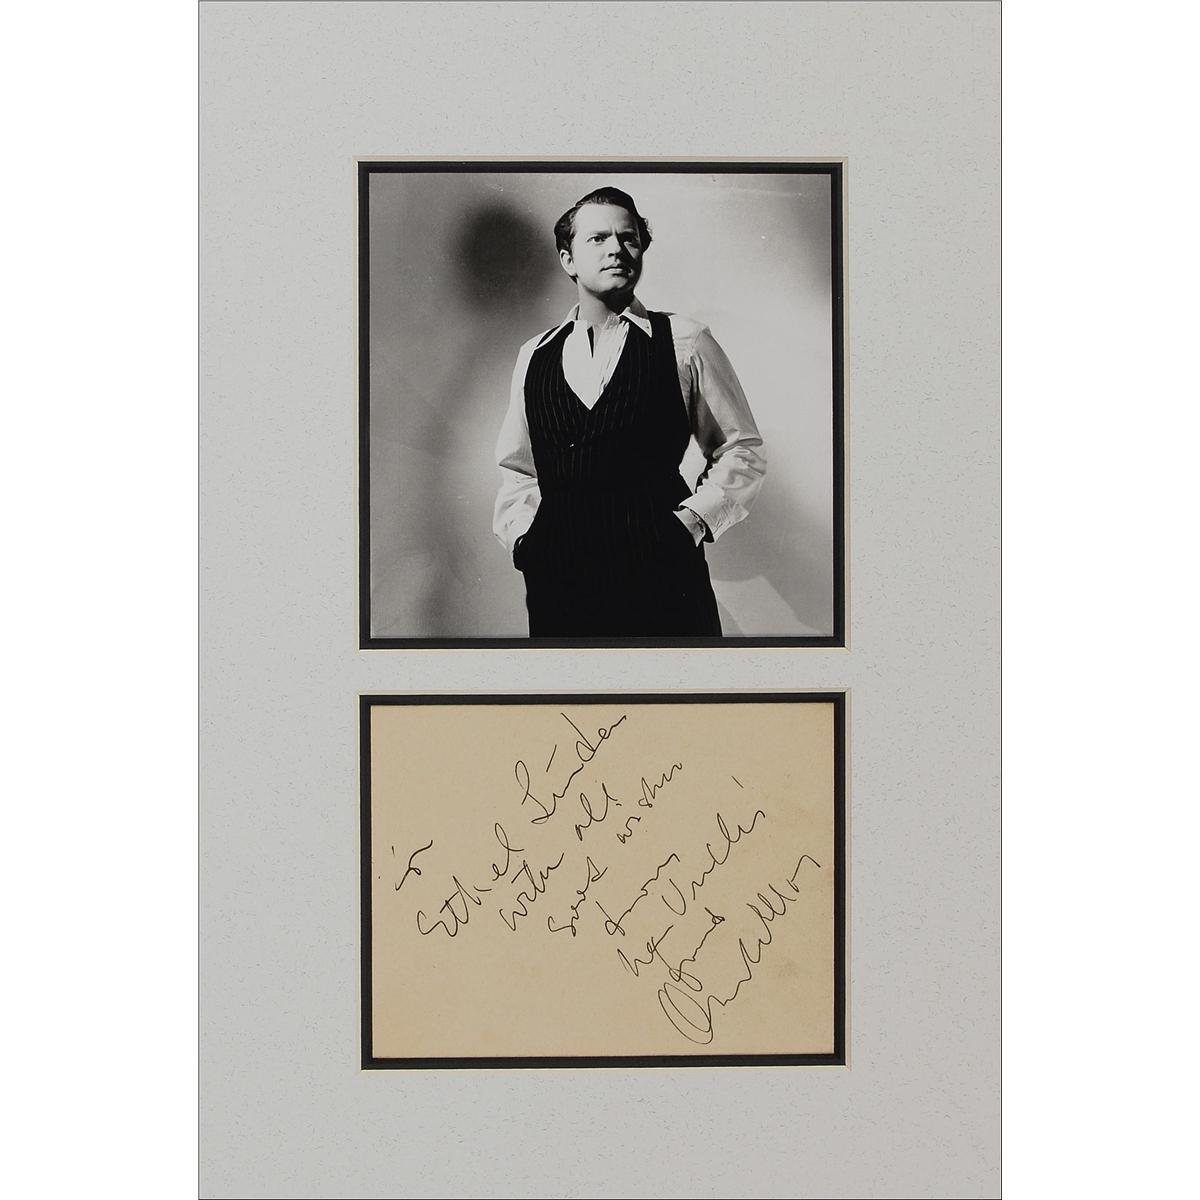 for
Ethel Linden
with all
good wishes
from
her Uncle's
friend
Orson Welles